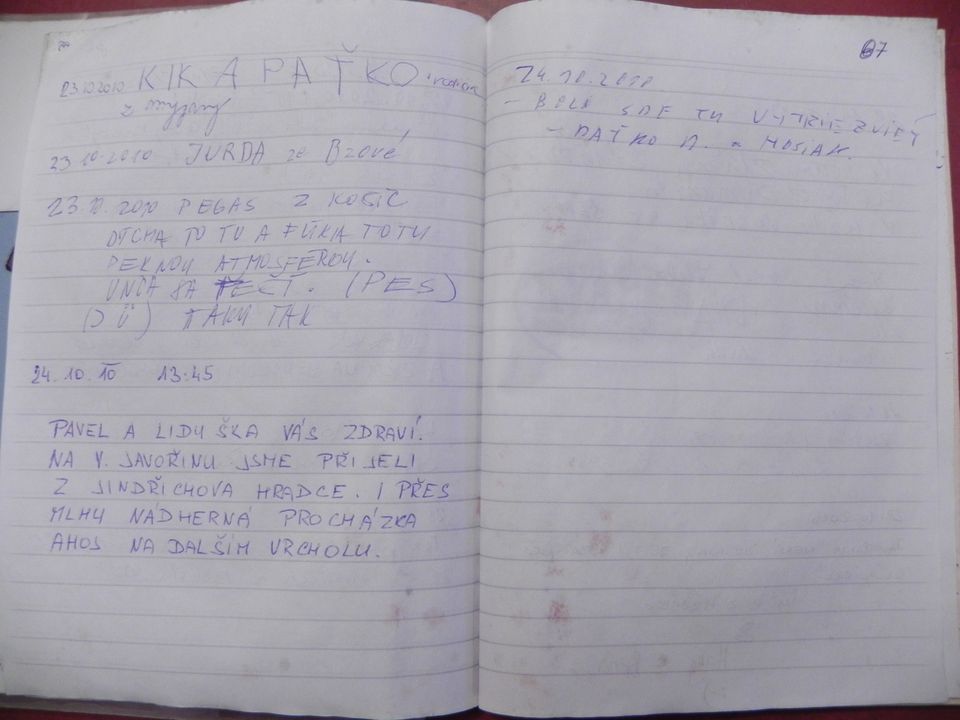 23.10.2010 KIKA PAŤKO
z myjavy
23.10.2010 JURDA ze Bzové
23.10.2010 PEGAS Z KOŠÍC
DÝCHA TU A FÚKA TOTU
PEKNOU ATMOSFÉROU.
(PES)
TAKÚ TAK
24.10.10 13:45
PAVEL A LIDUŠKA VÁS ZDRAVÍ.
NA V. JAVOŘINU JSME PŘIJELI
Z JINDŘICHOVA HRADCE. I PŘES
MLHU NÁDHERNÁ PROCHÁZKA
AHOJ NA DALŠÍM VRCHOLU.
67
24.10.2010
- BOLI SME TU VYTRIEZVIEŤ
- PAŤKO A. a